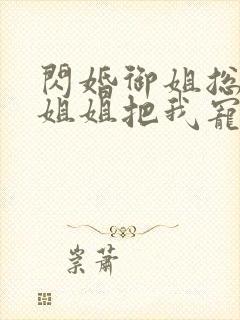 閃婚御姐总
姐姐把我寵
崇蕭